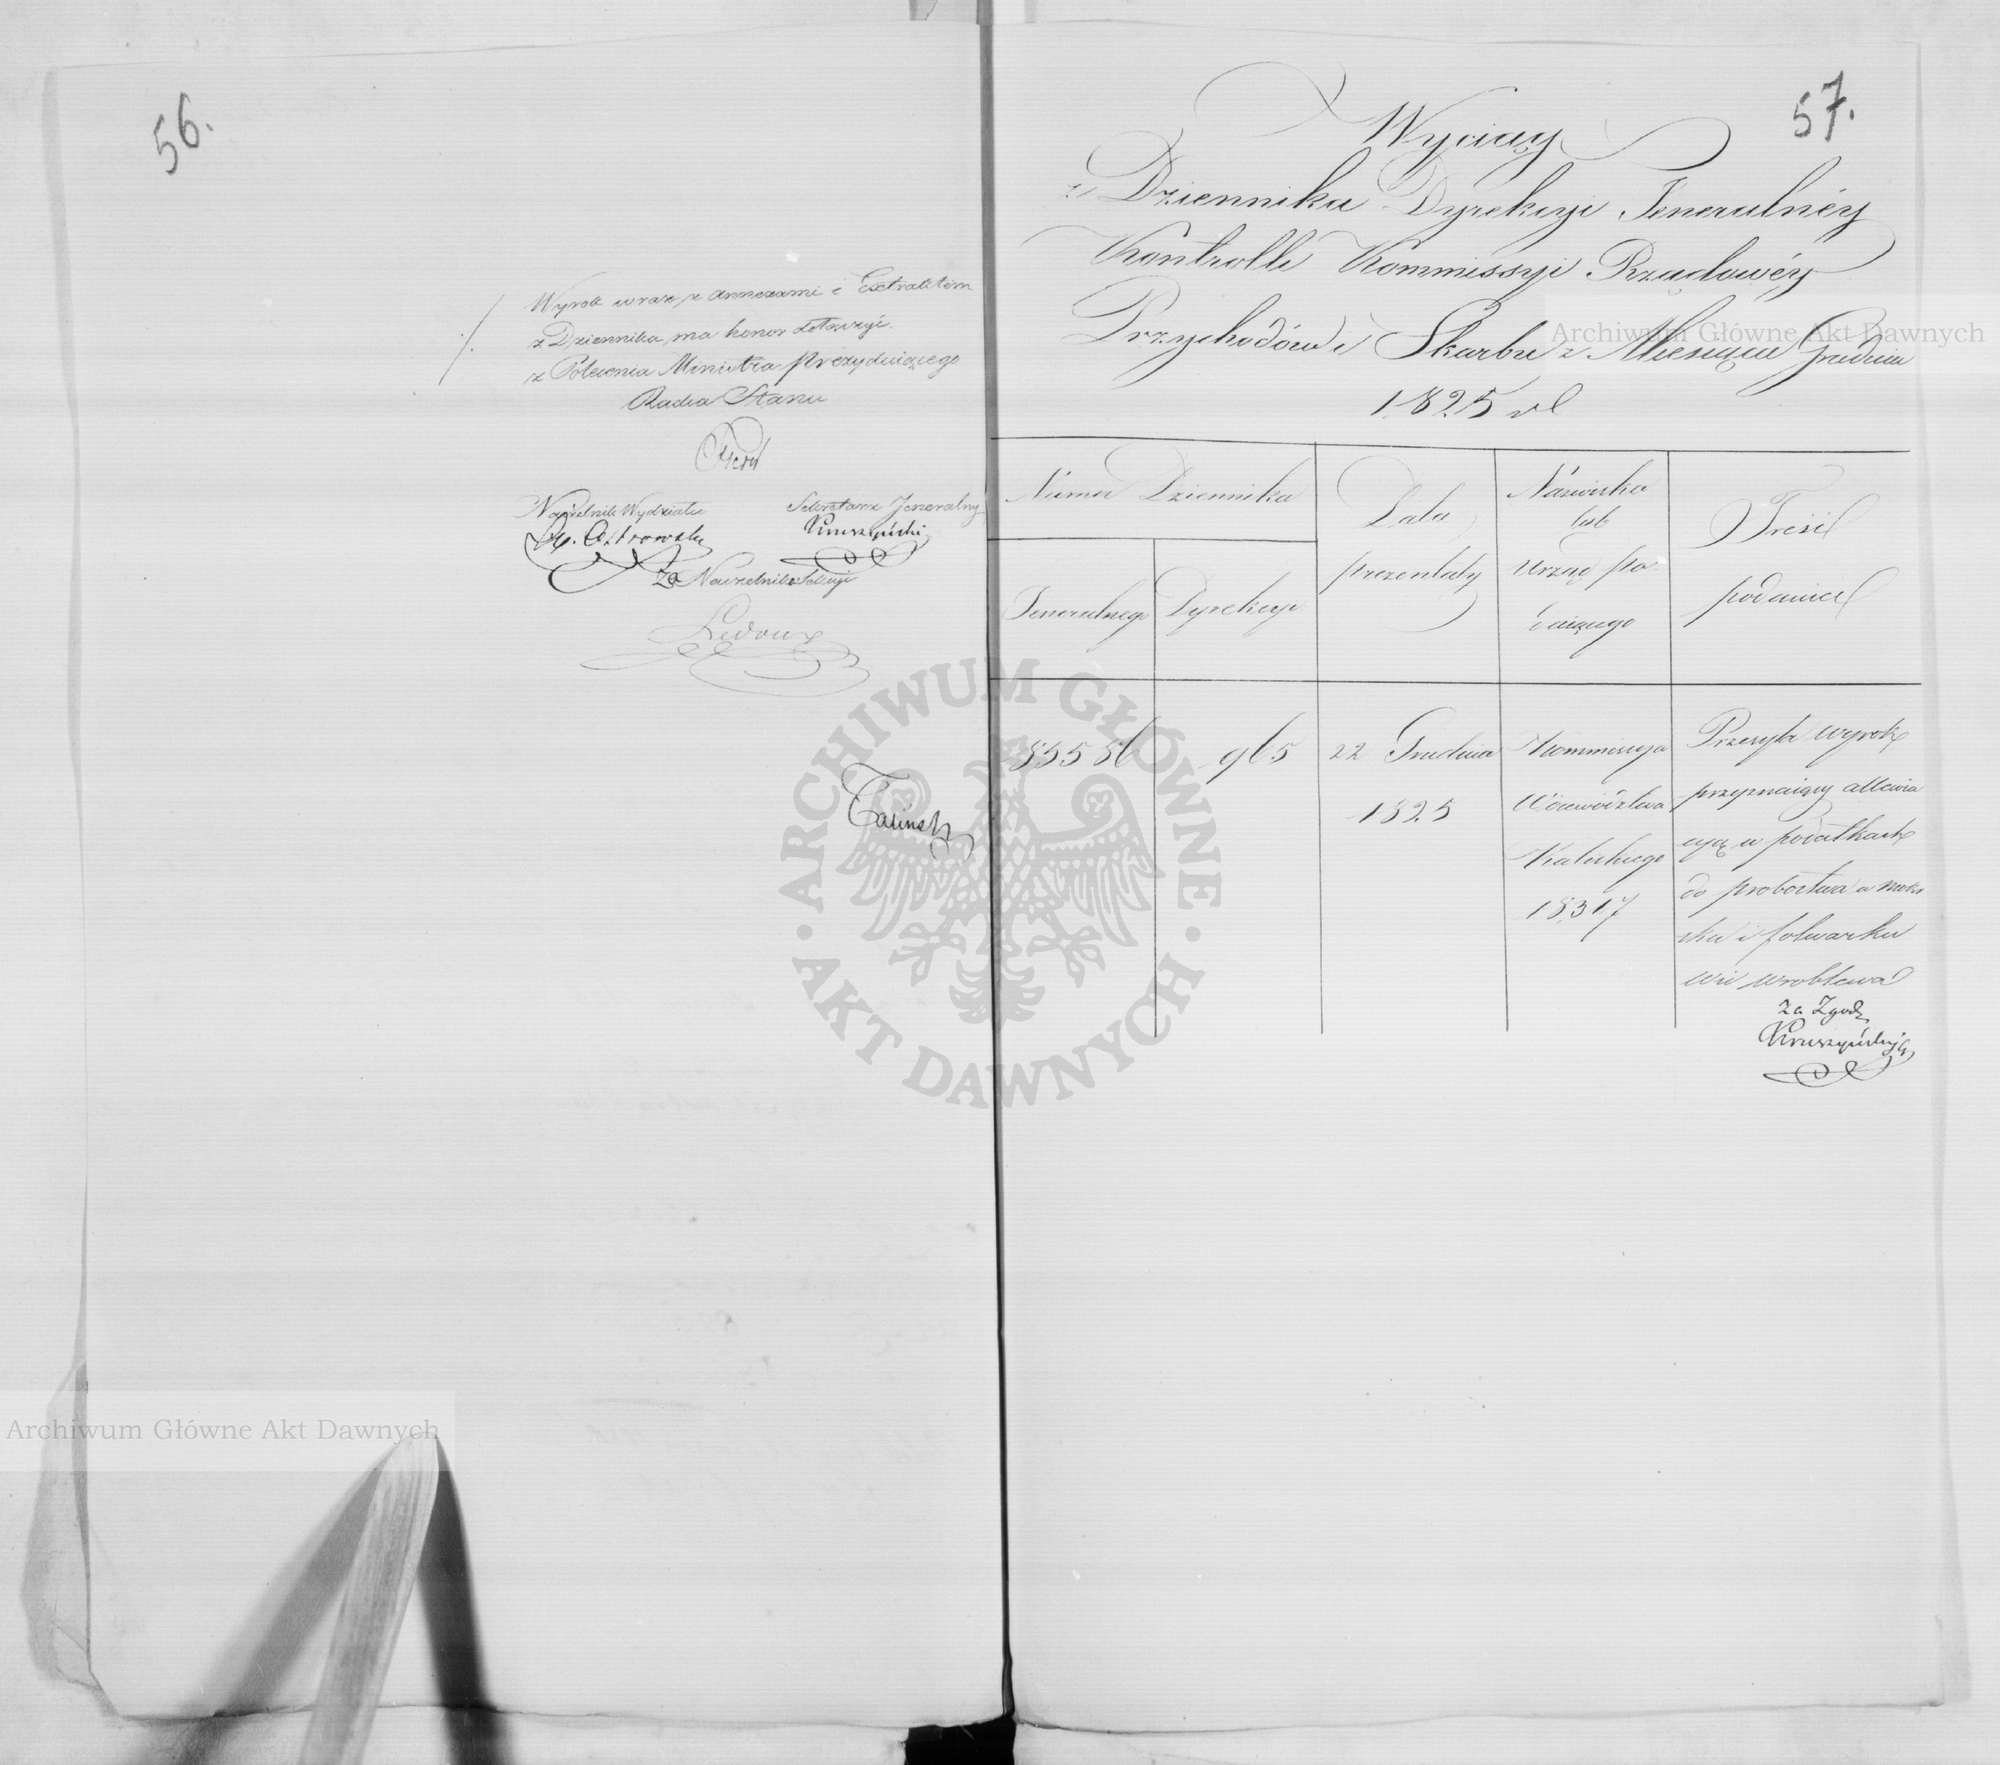 56.
Wyrok wraz z annexami i Extraktem
z Dziennika, ma honor dołączyć.
z Polecenia Ministra prezydującego
Radca Stanu
Naczelnik Wydziału
Sekretarz Jeneralny
Ostrowski
Kruszyński
Za Naczelnika Sekcyi
Ledoux
57.
Wyciąg
z Dziennika Dyrekcyi Jeneralnéy
Kontrolli Kommissyi Rządowéy
Przychodów i Skarbu z Miesiąca Grudnia
1825 r
Numer Dziennika
Jeneralnego
Dyrekcyi
Data
prezentaty
Nazwiska
lub
Urząd po-
daiącego
Treść
podania
85586
965
22 Grudnia
1825
Kommissyja
Woiewództwa
Kaliskiego
18317
Przesyła wyrok
przyznaiący allewia
cyą w podatkach
do probostwa w
i folwarku
wsi Wroblewa
Za Zgodę
Kruszyński
Archiwum Główne Akt Dawnych
Archiwum Główne Akt Dawnych
ARCHIWUM GŁÓWNE
AKT DAWNYCH